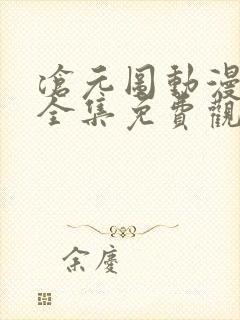 滄元圖動漫
全集免費觀
余慶